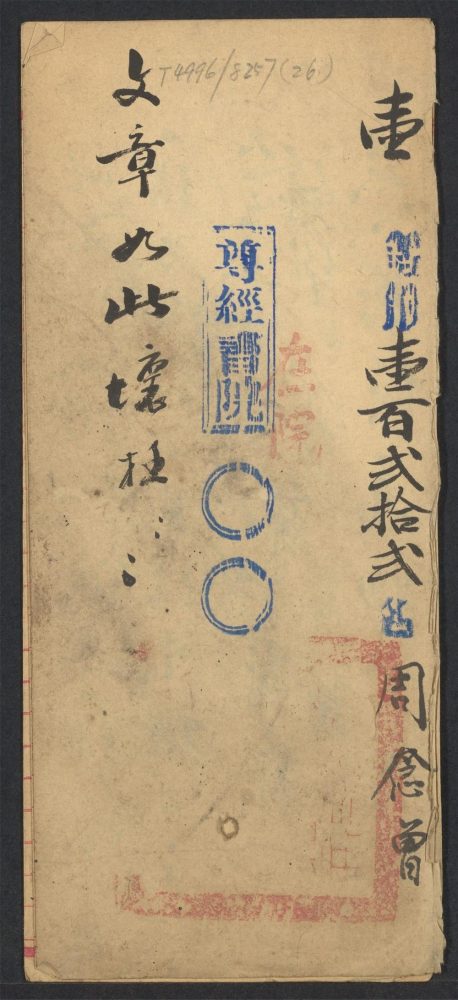 T4996/8257(26)
壹
壹百弍拾弍
周念曾
尊經書院
在院
文章如此壞極